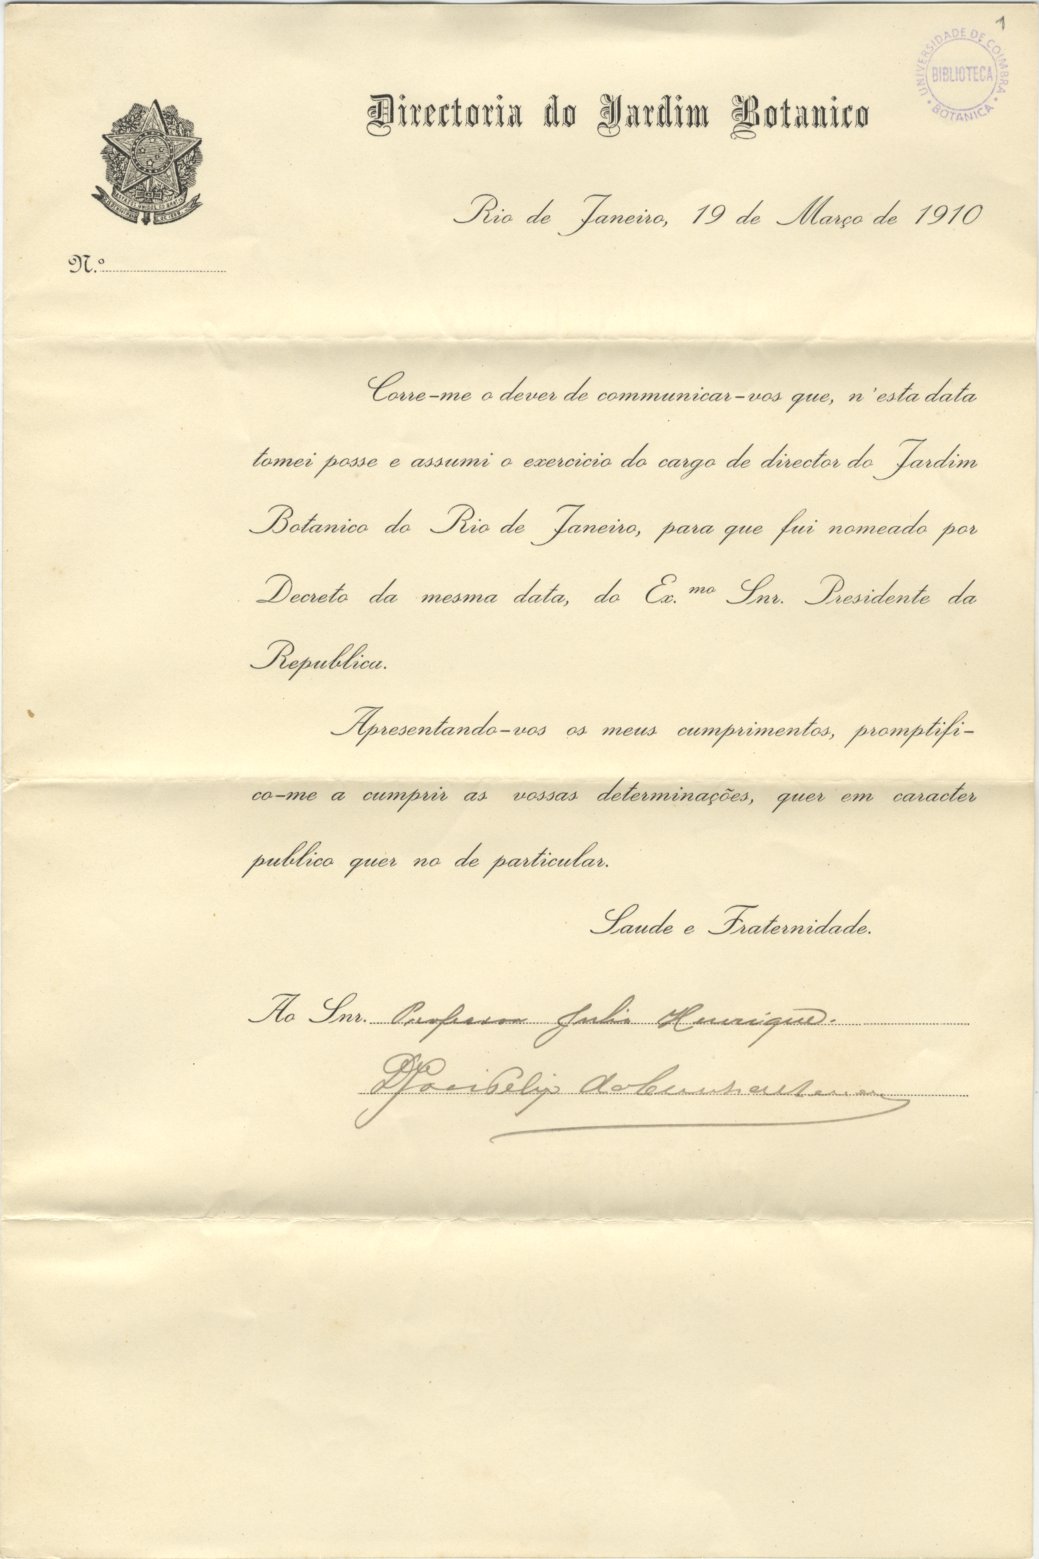 1
UNIVERSIDADE DE COIMBRA
BIBLIOTECA
BOTANICA
Directoria do Jardim Botanico
Rio de Janeiro, 19 de Março de 1910
N.º
Corre-me o dever de communicar-vos que, n'esta data
tomei posse e assumi o exercicio do cargo de director do Jardim
Botanico do Rio de Janeiro, para que fui nomeado por
Decreto da mesma data, do Ex.mo Snr. Presidente da
Republica.
Apresentando-vos os meus cumprimentos, promptifi-
co-me a cumprir as vossas determinações, quer em caracter
publico quer no de particular.
Saude e Fraternidade.
Ao Snr. Professor Julio Henrique.
Dr José Felix da Cunha Menezes